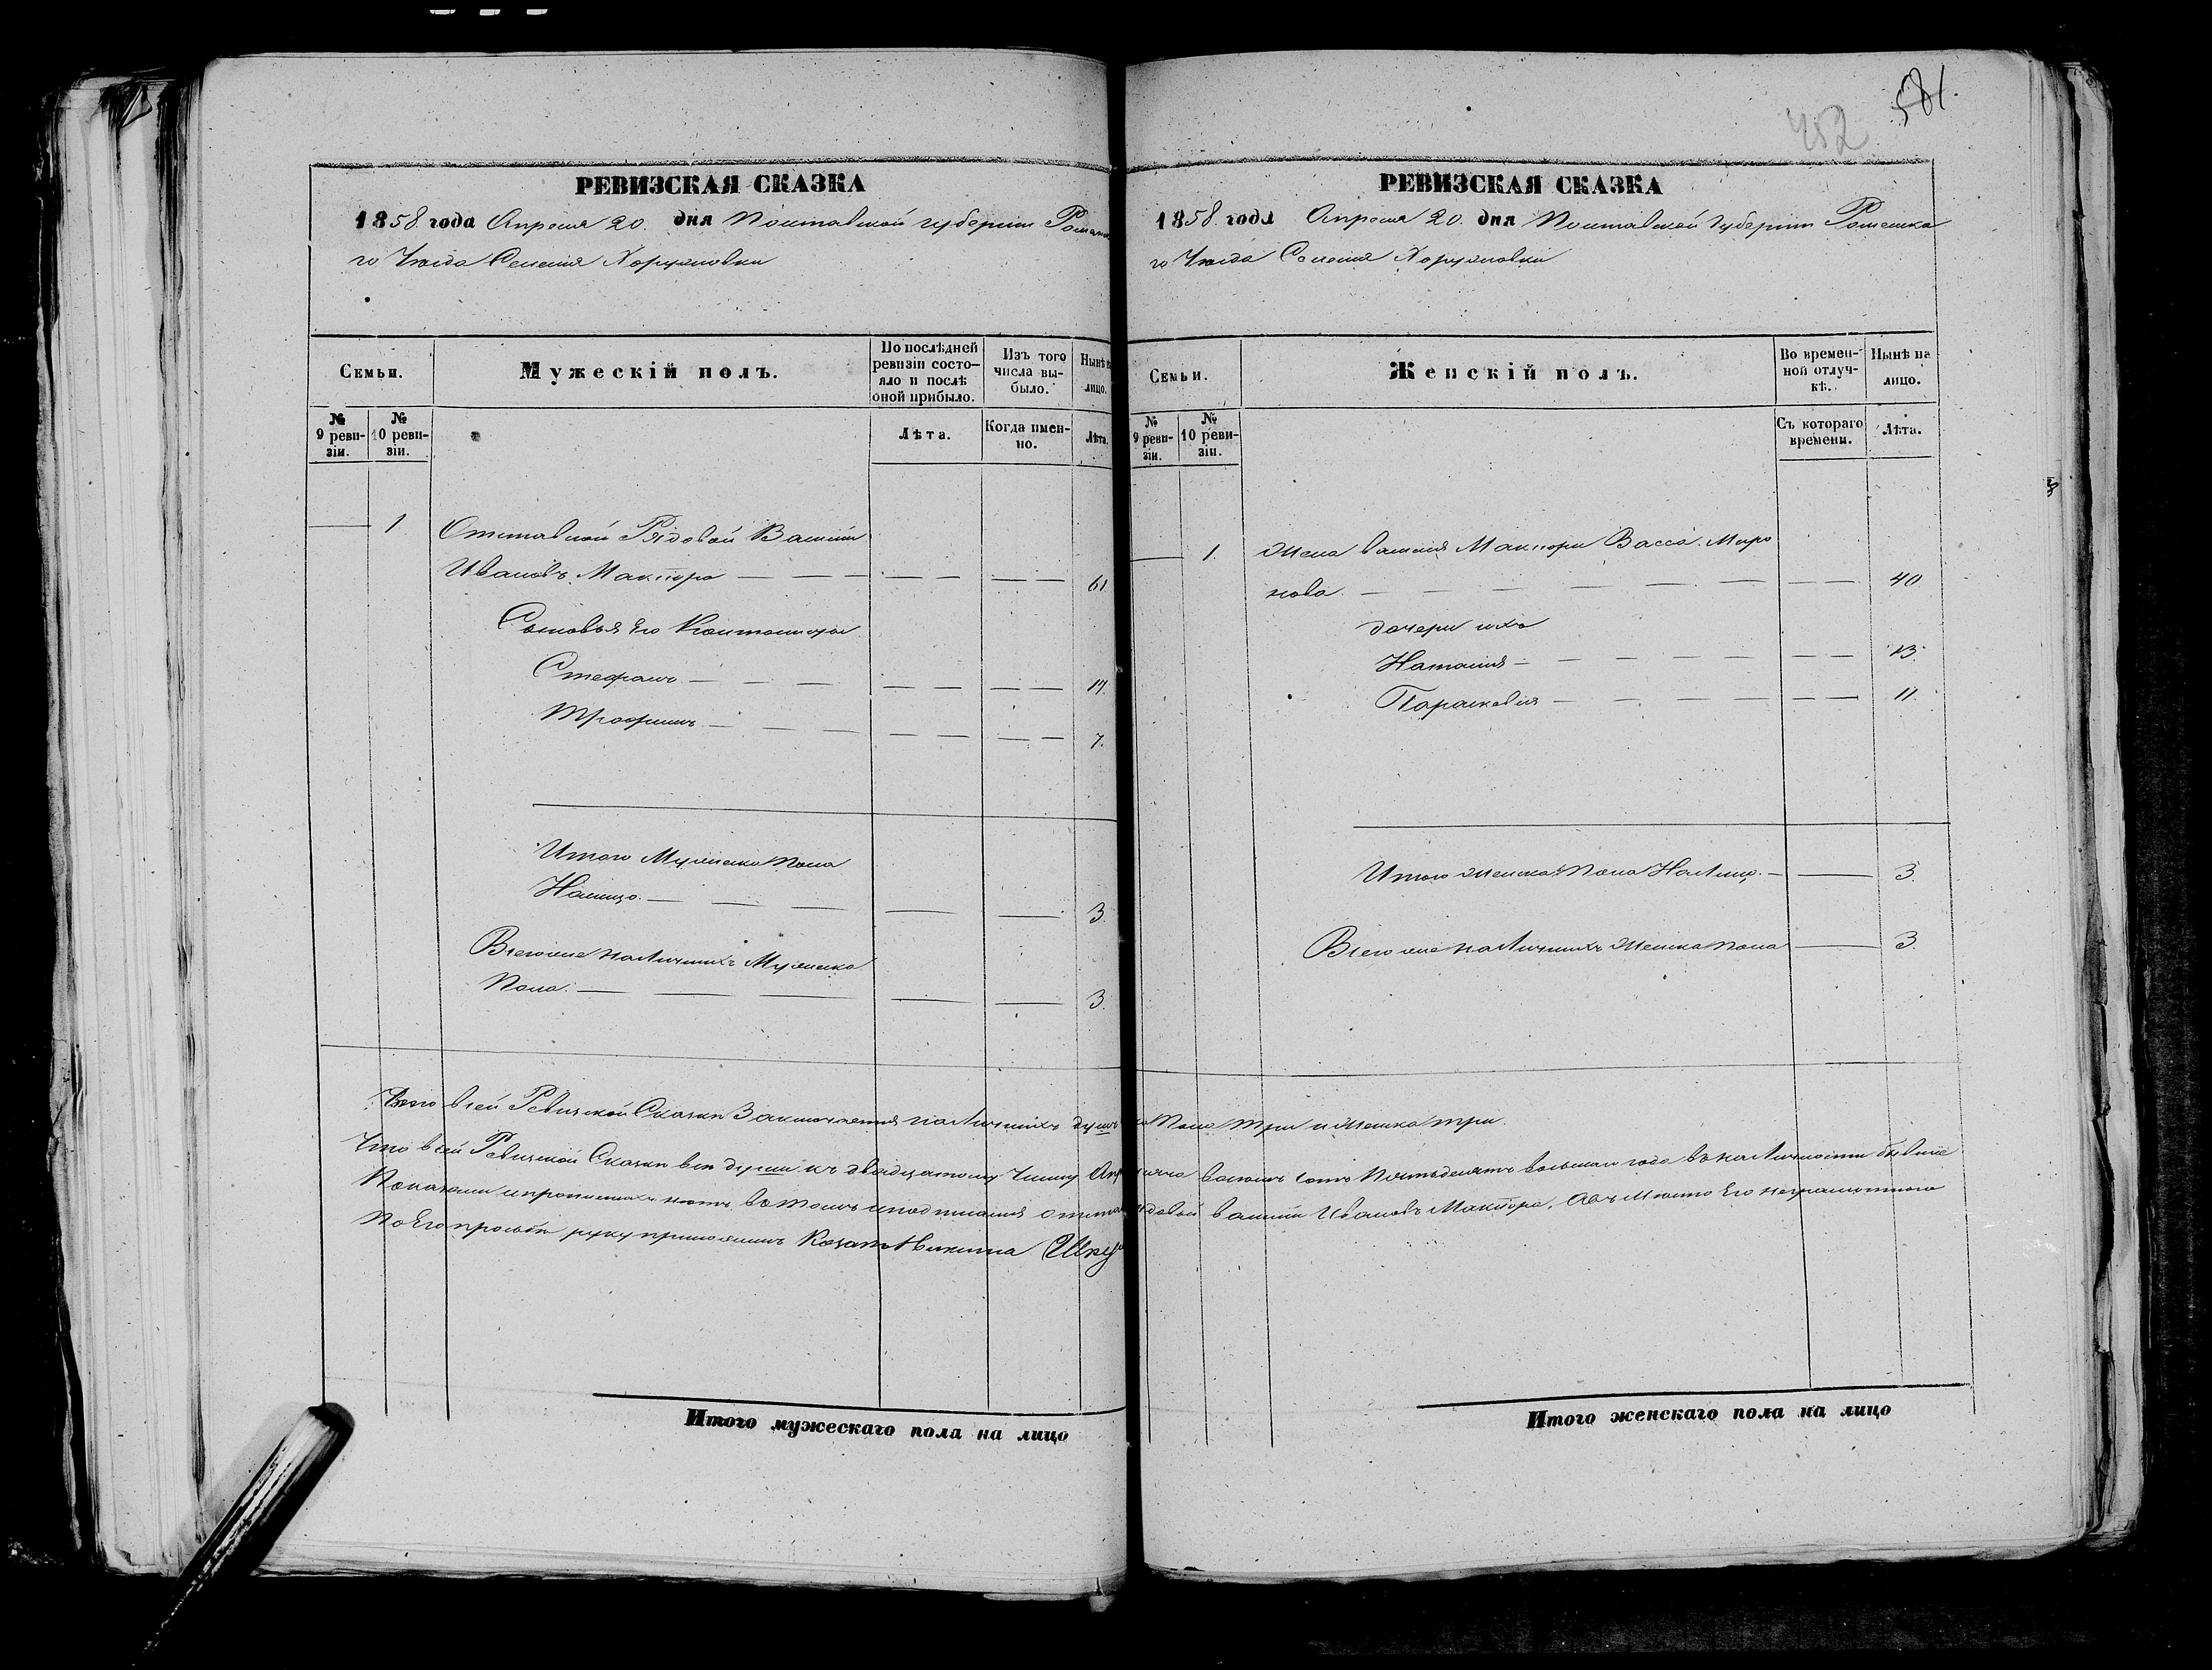 581.
452
РЕВИЗСКАЯ СКАЗКА
1858 года Апреля 20. дня Полтавской губернии Роменска
го Уезда Селения Хоружовки
Семьи.
Мужескій полъ.
По послѣдней ревизіи состо-
яло и послѣ оной прибыло.
Изъ того числа вы-
было.
Нынѣ на лицо.
№ 9 реви-
зіи.
№ 10 реви-
зіи.
Лѣта.
Когда имен-
но.
Лѣта.
1 Отставной Рядовой Василій
Ивановъ Макпора 61
Сыновья Его
Стефанъ 14.
Трофимъ 7.
Итого Мужеска Пола
Налицо. 3.
Всего же наличныхъ Мужеска
Пола. 3.
РЕВИЗСКАЯ СКАЗКА
1858 года Апреля 20. дня Полтавской Губерніи Роменска
го Уезда Селения Хоружовки
Семьи.
Женскій полъ.
Во времен-
ной отлуч-
кѣ.
Нынѣ на лицо.
№ 9 реви-
зіи.
№ 10 реви-
зіи.
Съ котораго времени.
Лѣта.
1. Жена Василия Макпоры Васса Миро
нова. 40
дочери ихъ
Наталия 13.
Параскевия 11.
Итого женска Пола На Лицо. 3.
Всего же на Личныхъ Женска пола 3.
Всего всей Ревизской Сказки Заключается на Личныхъ душъ ка Пола три и женска три.
Что всей Ревизской Сказки все души къ двадцатому Числу Апр восемь сотъ Пятьдесятъ восьмаго года въ на Личности бывшие
Показаны и прописныхъ нетъ въ томъ и подписался отстав ядовой Василій Ивановъ Макпора, а въ место Его неграмотного
По Его прозьбе руку приложилъ Козакъ Никита Шку
Итого мужескаго пола на лицо
Итого женскаго пола на лицо